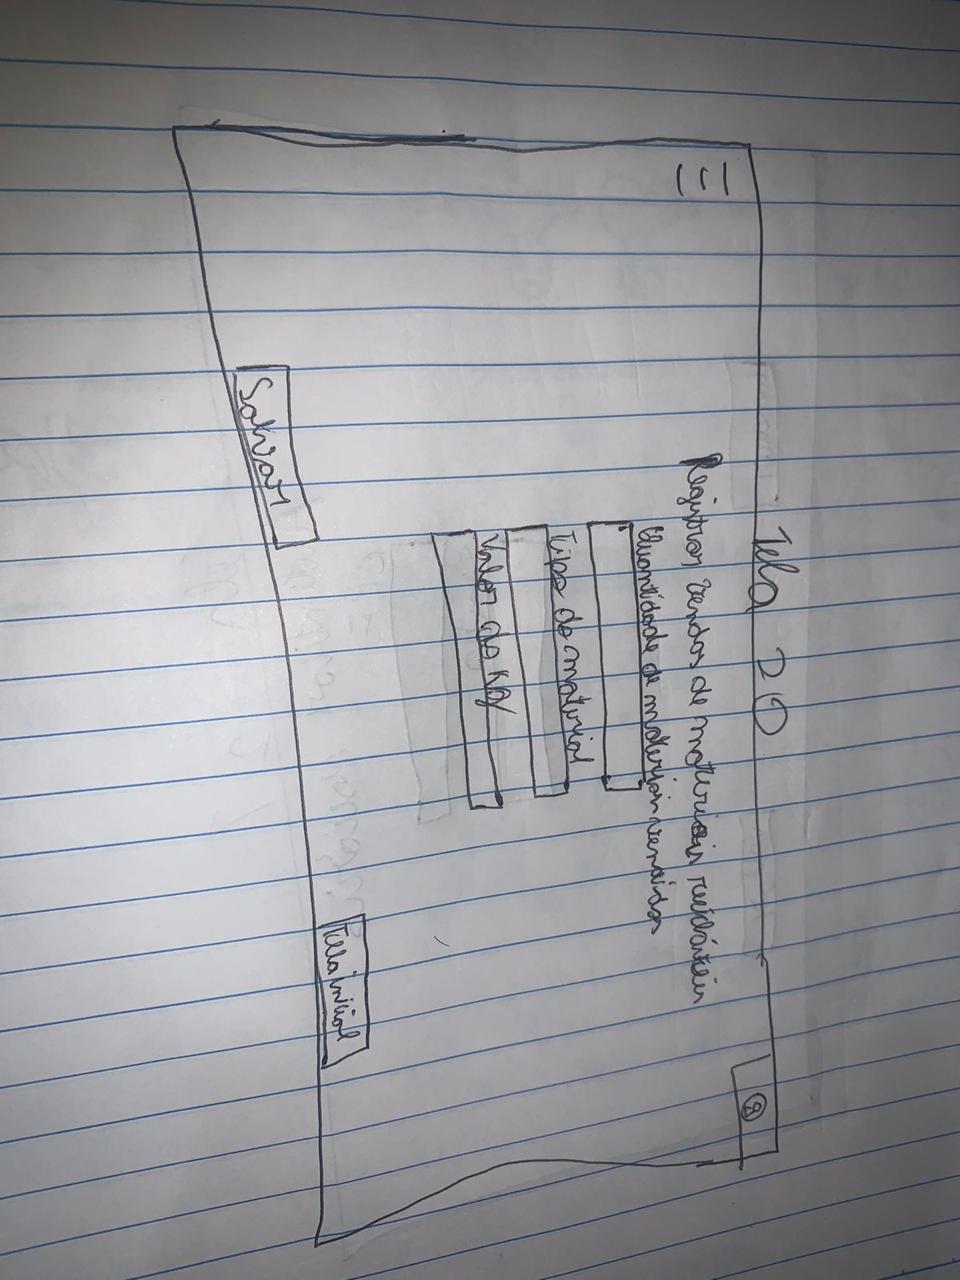 Tela 20
Registrar vendas de materiais recicláveis
Quantidade de materiais vendidos
Tipo do material
Valor do KG
Salvar
Tela inicial